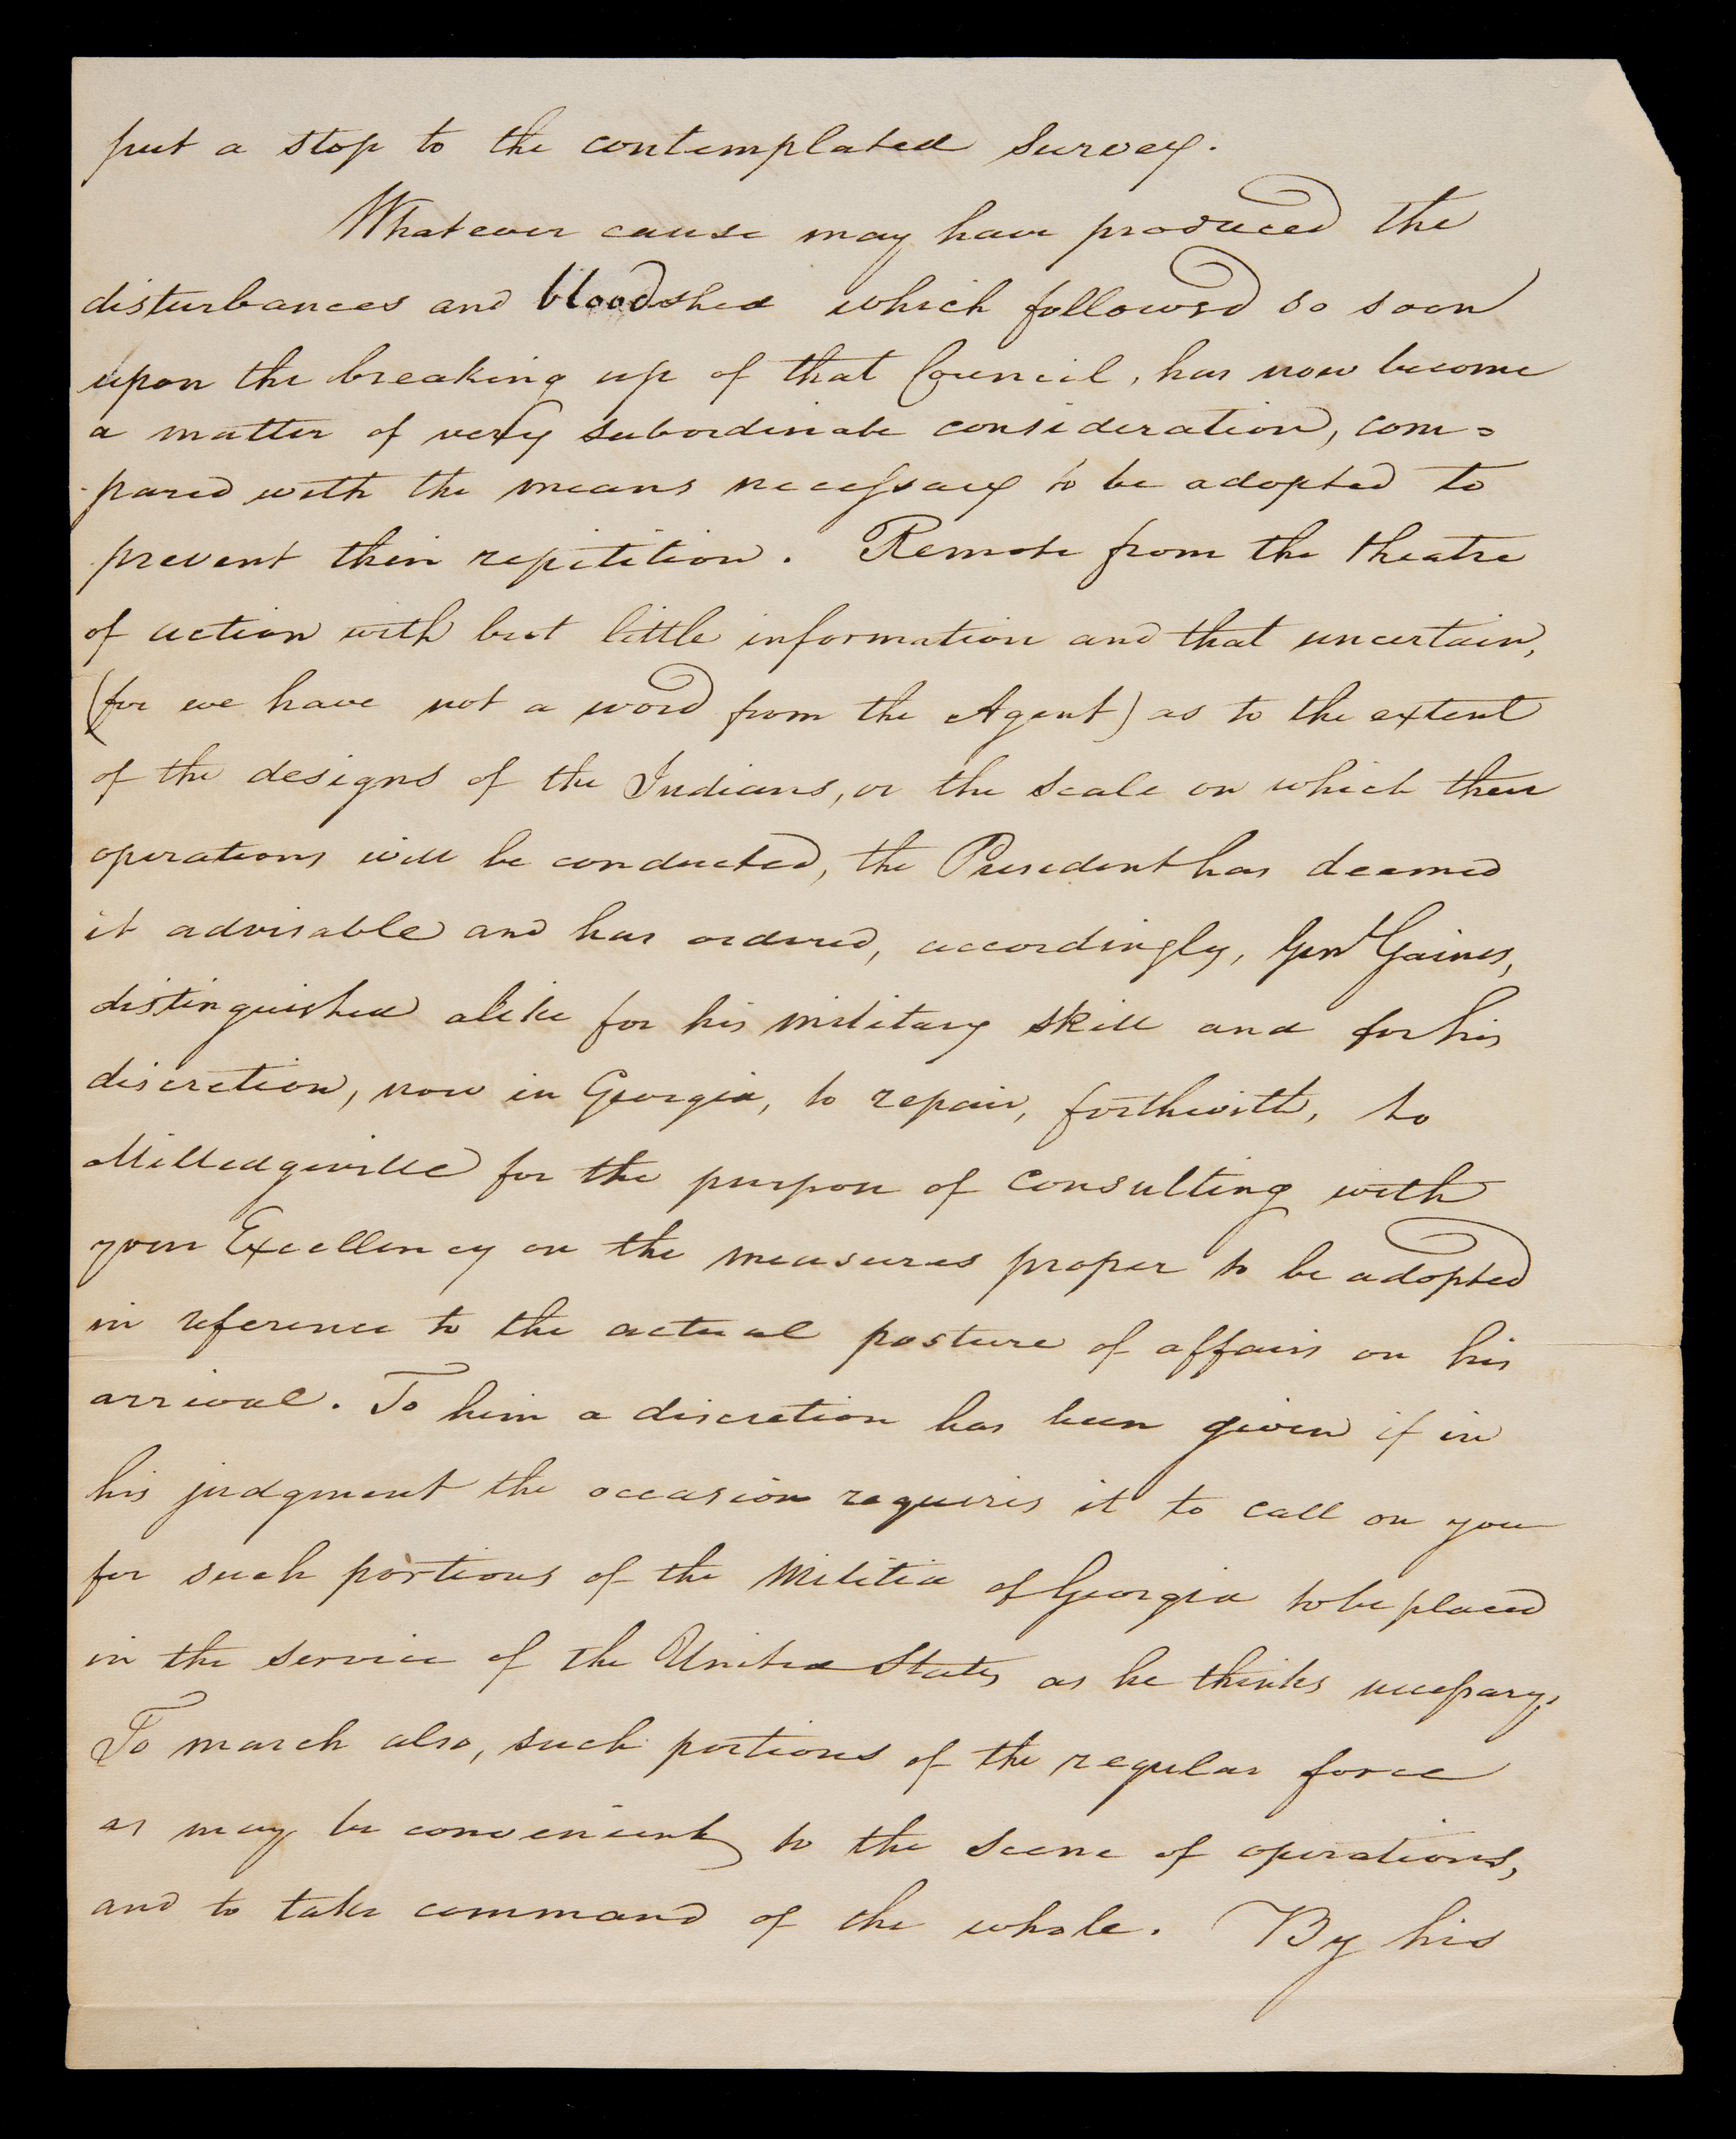 put a stop to the contemplated survey.
Whatever cause may have produced the
disturbances and bloodshed which followed so soon
upon the breaking up of that Council, has now become
a matter of very subordinate consideration, com=
pared with the means necessary to be adopted to
prevent their repitition. Remote from the theatre
of action with but little information and that uncertain,
(for we have not a word from the Agent) as to the extent
of the designs of the Indians, or the scale on which their
operations will be conducted, the President has deemed
it advisable and has ordered, accordingly, Genl Gaines,
distinguished alike for his military skill and for his
discretion, now in Georgia, to repair, forthwith, to
Milledgeville for the purpose of consulting with
your Excellency on the measures proper to be adopted
in reference to the actual posture of affairs on his
arrival. To him a discretion has been given if in
his judgment the occasion requires it to call on you
for such portions of the Militia of Georgia to be placed
in the service of the United States as he thinks necessary;
To march also, such portions of the regular force
as may be convenient to the scene of operations,
and to take command of the whole. By his